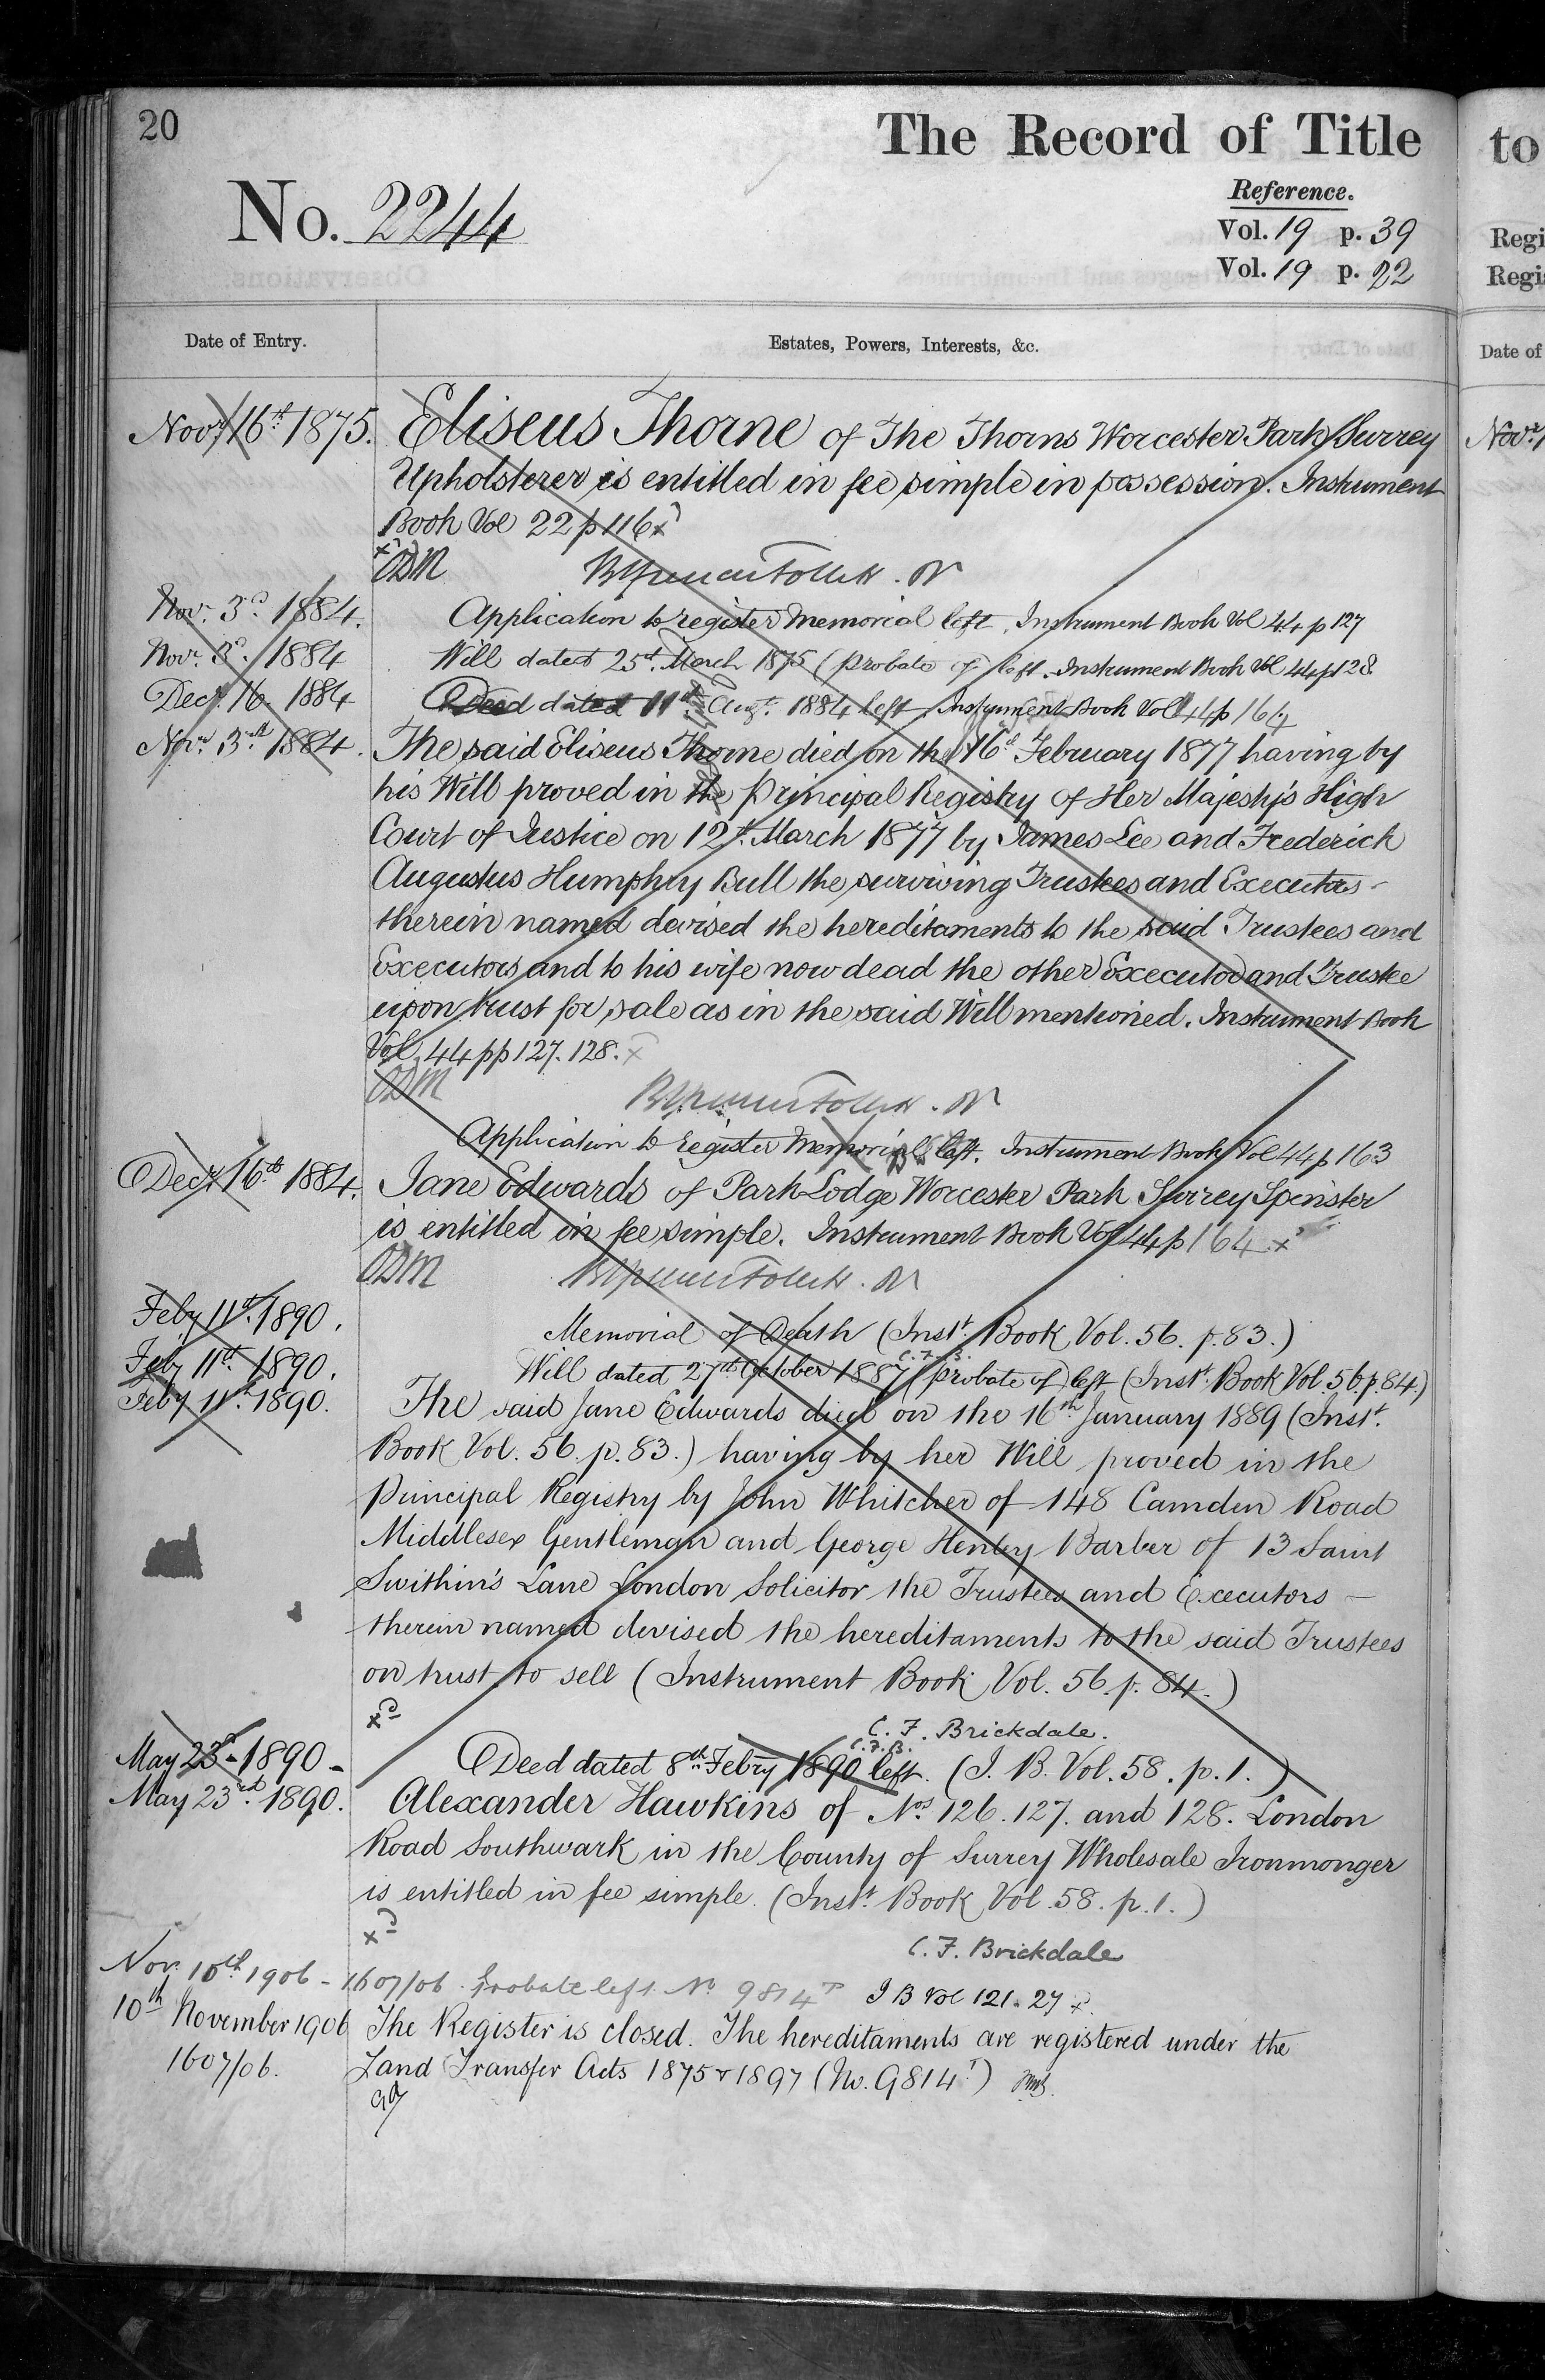 20
The Record of Title
to
No. 2244
Reference.
Vol. 19 p. 39
Vol. 19 p. 22
Regi
Regi
Date of Entry.
Estates, Powers, Interests, &c.
Date of
Novr. 16th 1875. Eliseus Thorne of The Thorns Worcester Park Surrey
Novr. 1
Upholsterer is entitled in fee simple in possession. Instrument
Book Vol 22 p 116 x
x ODM
Nov. 3d. 1884. Application to register Memorial left. Instrument Book Vol 44 p 127
Novr. 3d. 1884 Will dated 25th. March 1875 (probate of) left. Instrument Book Vol 44 p 128
Decr. 16. 1884 Deed dated 11th Augt. 1884 left. Instrument Book Vol 44 p 164
Novr. 3rd 1884. The said Eliseus Thorne died on the 16th February 1877 having by
his Will proved in the Principal Registry of Her Majesty's High
Court of Justice on 12th. March 1877 by James Lee and Frederick
Augustus Humphry Bull the surviving Trustees and Executors -
therein named devised the hereditaments to the said Trustees and
Executors and to his wife now dead the other Executor and Trustee
upon trust for sale as in the said Will mentioned. Instrument Book
Vol. 44 pp 127. 128. x
ODM
Application to register Memorial left. Instrument Book Vol 44 p 163
Decr 16th 1884. Jane Edwards of Park Lodge Worcester Park Surrey Spinster
is entitled in fee simple. Instrument Book Vol 44 p 164 x
ODM
Feby 11th. 1890. Memorial of Death (Instt. Book Vol. 56. p. 83.)
C.F.B.
Feby 11th. 1890. Will dated 27th October 1887 (probate of) left (Instt. Book Vol. 56 p. 84.)
Feby 11th. 1890. The said Jane Edwards died on the 16th. January 1889 (Instt.
Book Vol. 56. p. 83.) having by her Will proved in the
Principal Registry by John Whitcher of 148 Camden Road
Middlesex Gentleman and George Henry Barber of 13 Saint
Swithin's Lane London Solicitor the Trustees and Executors -
therein named devised the hereditaments to the said Trustees
on trust to sell (Instrument Book Vol. 56. p. 84.)
x
C. F. Brickdale.
C.F.B.
May 23d - 1890 - Deed dated 8th Febry 1890 left. (I. B. Vol. 58. p. 1.)
May 23rd. 1890. Alexander Hawkins of Nos. 126. 127. and 128. London
Road Southwark in the County of Surrey Wholesale Ironmonger
is entitled in fee simple. (Instt. Book Vol. 58. p. 1.)
x
C. F. Brickdale
Nov. 10th 1906 - 1607/06. Probate left No 9814T I B Vol 121. 27 x
10th November 1906 The Register is closed. The hereditaments are registered under the
1607/06. Land Transfer Acts 1875 & 1897 (No. 9814T)